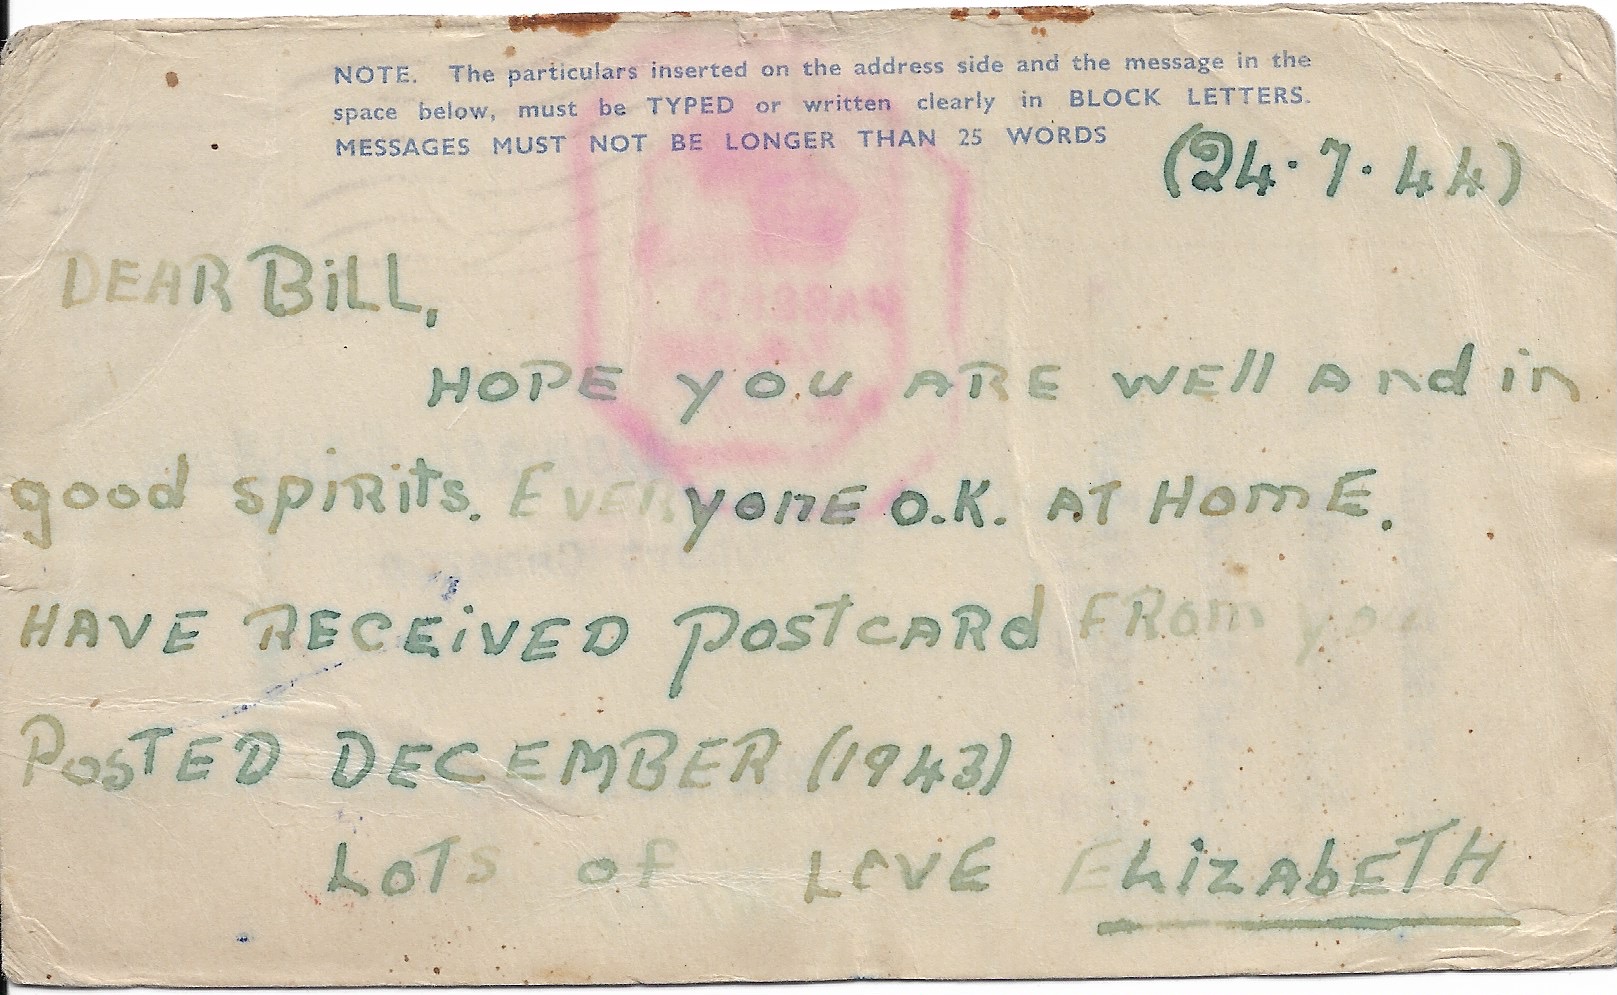 NOTE. The particulars inserted on the address side and the message in the
space below, must be TYPED or written clearly in BLOCK LETTERS.
MESSAGES MUST NOT BE LONGER THAN 25 WORDS
(24.7.44)
DEAR BiLL,
HOPE you ARE WEll And in
good spiRits. EVERyonE O.K. AT HomE.
HAVE RECEiVED postcARd FRom you
PosTED DECEMBER (1943)
LoTs of LoVE ELizAbETH